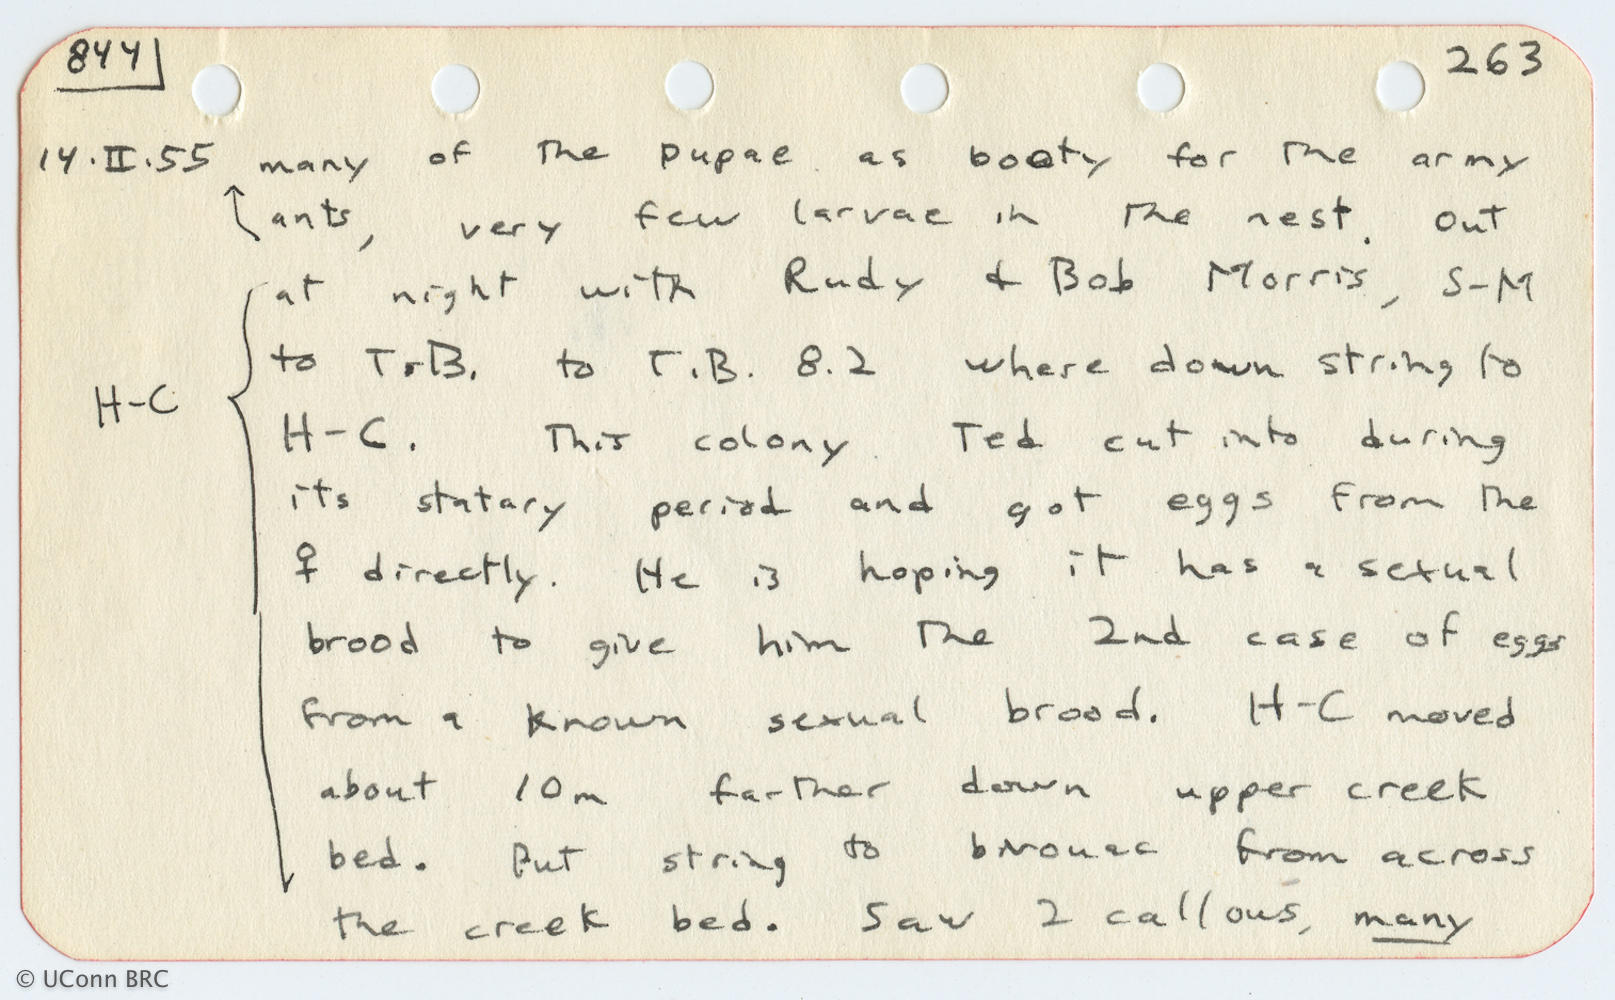 844 263
14.II.55 many of the pupae as booty for the army
ants, very few larvae in the nest. Out
at night with Rudy & Bob Morris, S-M
to T.B. to T.B. 8.2 where down string to
H-C
H-C. This colony Ted cut into during
its statary period and got eggs from the
♀ directly. He is hoping it has a sexual
brood to give him the 2nd case of eggs
from a known sexual brood. H-C moved
about 10m farther down upper creek
bed. Put string to bivouac from across
the creek bed. Saw 2 callous, many
© UConn BRC